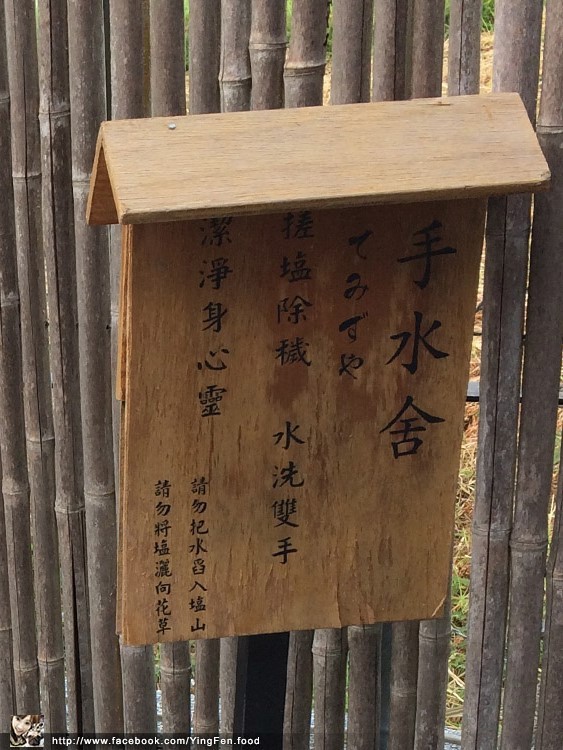 手水舍
てみずや
搓塩除穢 水洗雙手
潔淨身心靈
請勿把水舀入塩山
請勿將塩灑向花草
http://www.facebook.com/YingFen.food